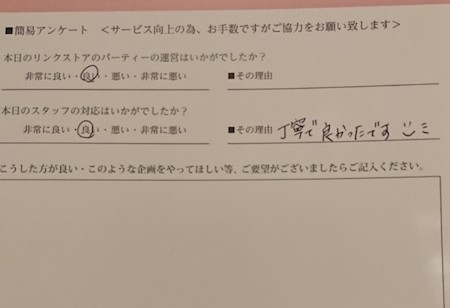 ■簡易アンケート ＜サービス向上の為、お手数ですがご協力をお願い致します＞
本日のリンクストアのパーティーの運営はいかがでしたか？
非常に良い・良い・悪い・非常に悪い ■その理由
本日のスタッフの対応はいかがでしたか？
非常に良い・良い・悪い・非常に悪い ■その理由 丁寧で良かったです
こうした方が良い・このような企画をやってほしい等、ご要望がございましたらご記入ください。